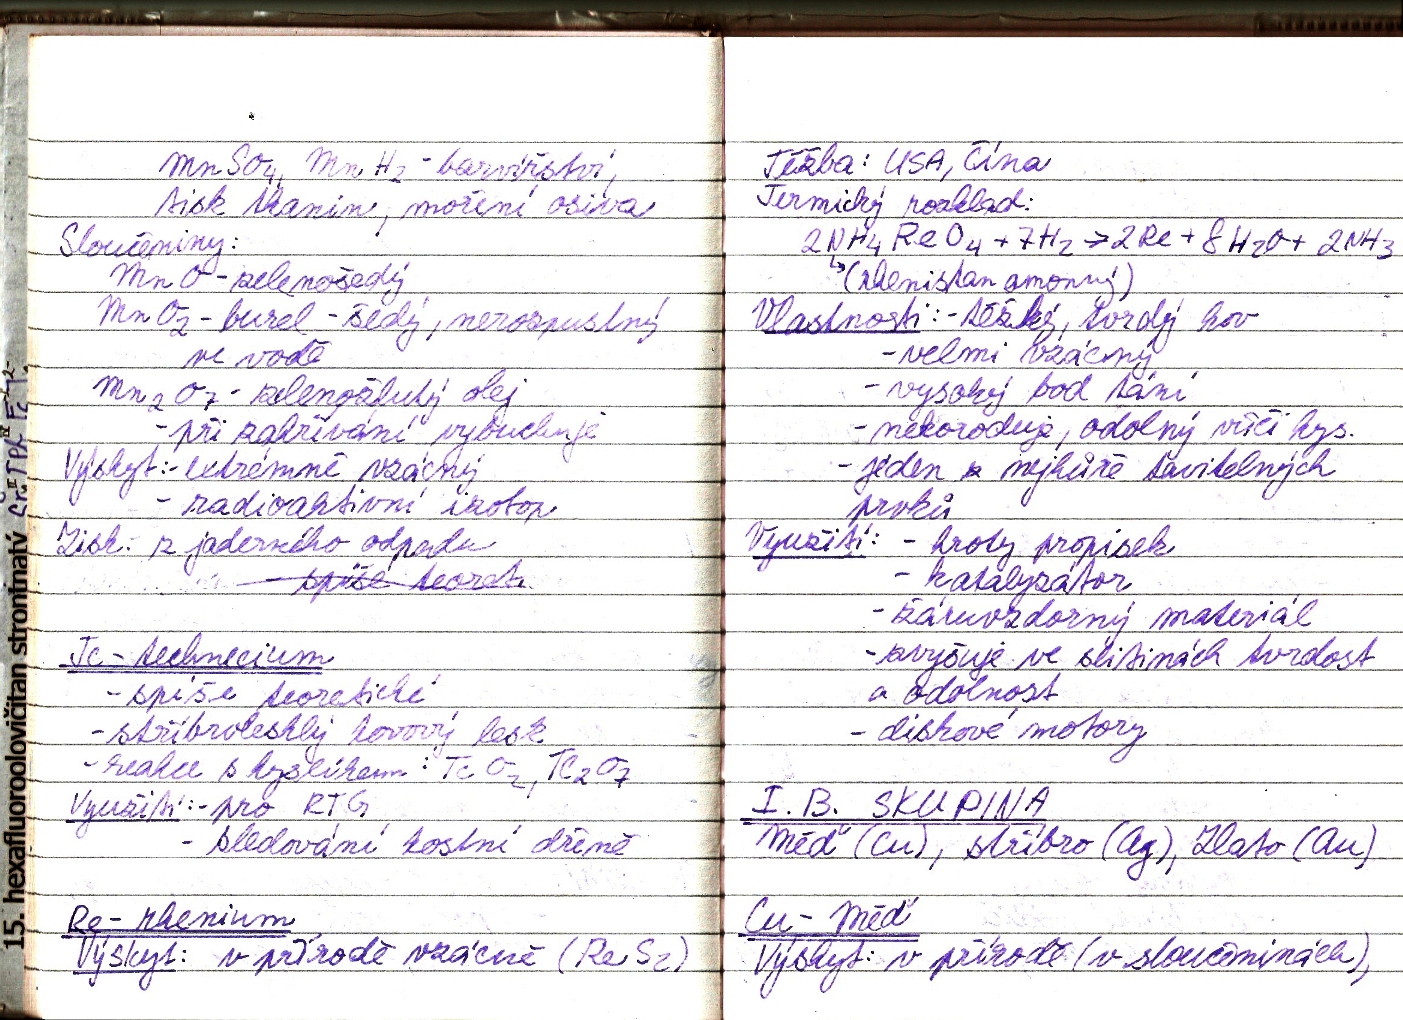 MnSO4, MnH2 - barvířství,
tisk tkanin, moření osiva
Sloučeniny:
MnO - zelenošedý
MnO2 - burel - šedý, nerozpustný
ve vodě
Mn2O7 - zelenožlutý olej
- při zahřívání vybuchuje
Výskyt: - extrémně vzácný
- radioaktivní izotop
Získ: z jaderného odpadu
- spíše teoret.
Tc - technecium
- spíše teoretické
- stříbrolesklý kovový lesk
- reakce s kyslíkem: TcO2, Tc2O7
Využití: - pro RTG
- sledování kostní dřeně
Re - rhenium
Výskyt: v přírodě vzácně (ReS2)
Těžba: USA, Čína
Termický rozklad:
2NH4ReO4 + 7H2 → 2Re + 8H2O + 2NH3
↳ (rhenistan amonný)
Vlastnosti: - těžký, tvrdý kov
- velmi vzácný
- vysoký bod tání
- nekoroduje, odolný vůči kys.
- jeden z nejhůře tavitelných
prvků
Využití: - hroty propisek
- katalyzátor
- žáruvzdorný materiál
- zvyšuje ve slitinách tvrdost
a odolnost
- diskové motory
I. B. SKUPINA
Měď (Cu), stříbro (Ag), Zlato (Au)
Cu - Měď
Výskyt: v přírodě (v sloučeninách),
15. hexafluoroolovičitan strontnatý